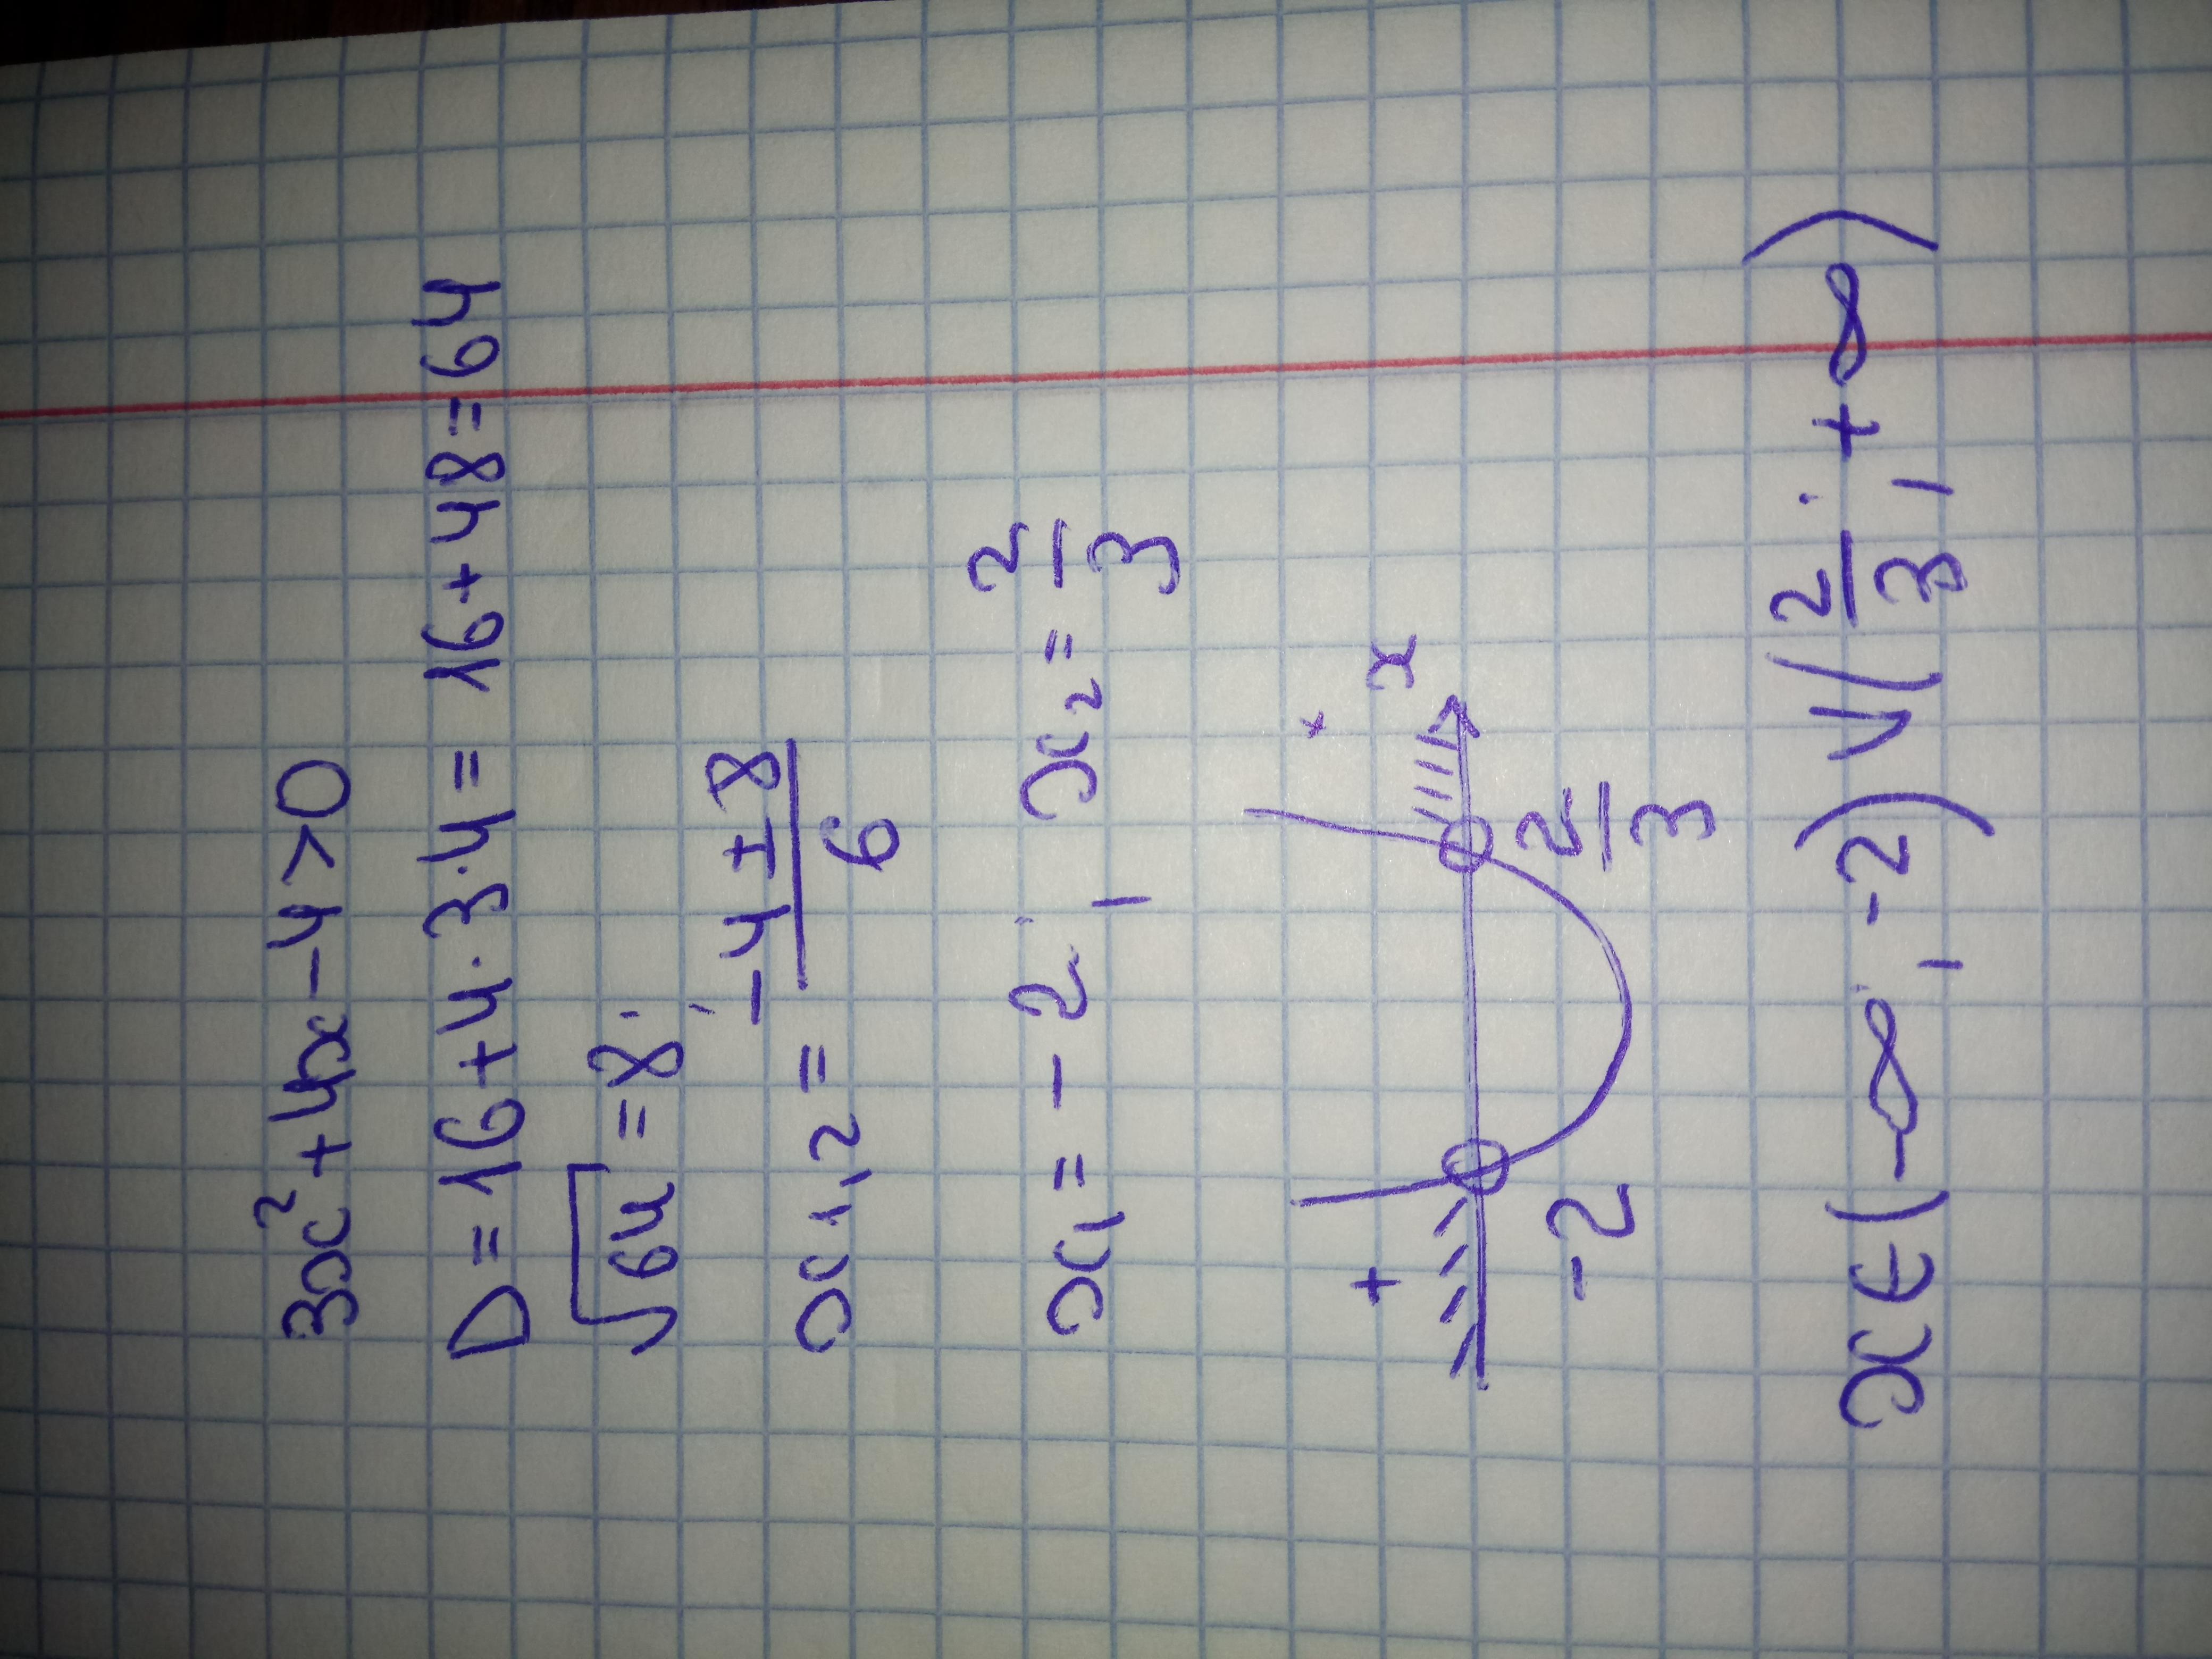 3x²+4x-4>0
D=16+4·3·4=16+48=64
√64=8;
x₁,₂=(-4±8)/6
x₁=-2; x₂=2/3
+ + x
-2 2/3
x∈(-∞;-2)V(2/3;+∞)